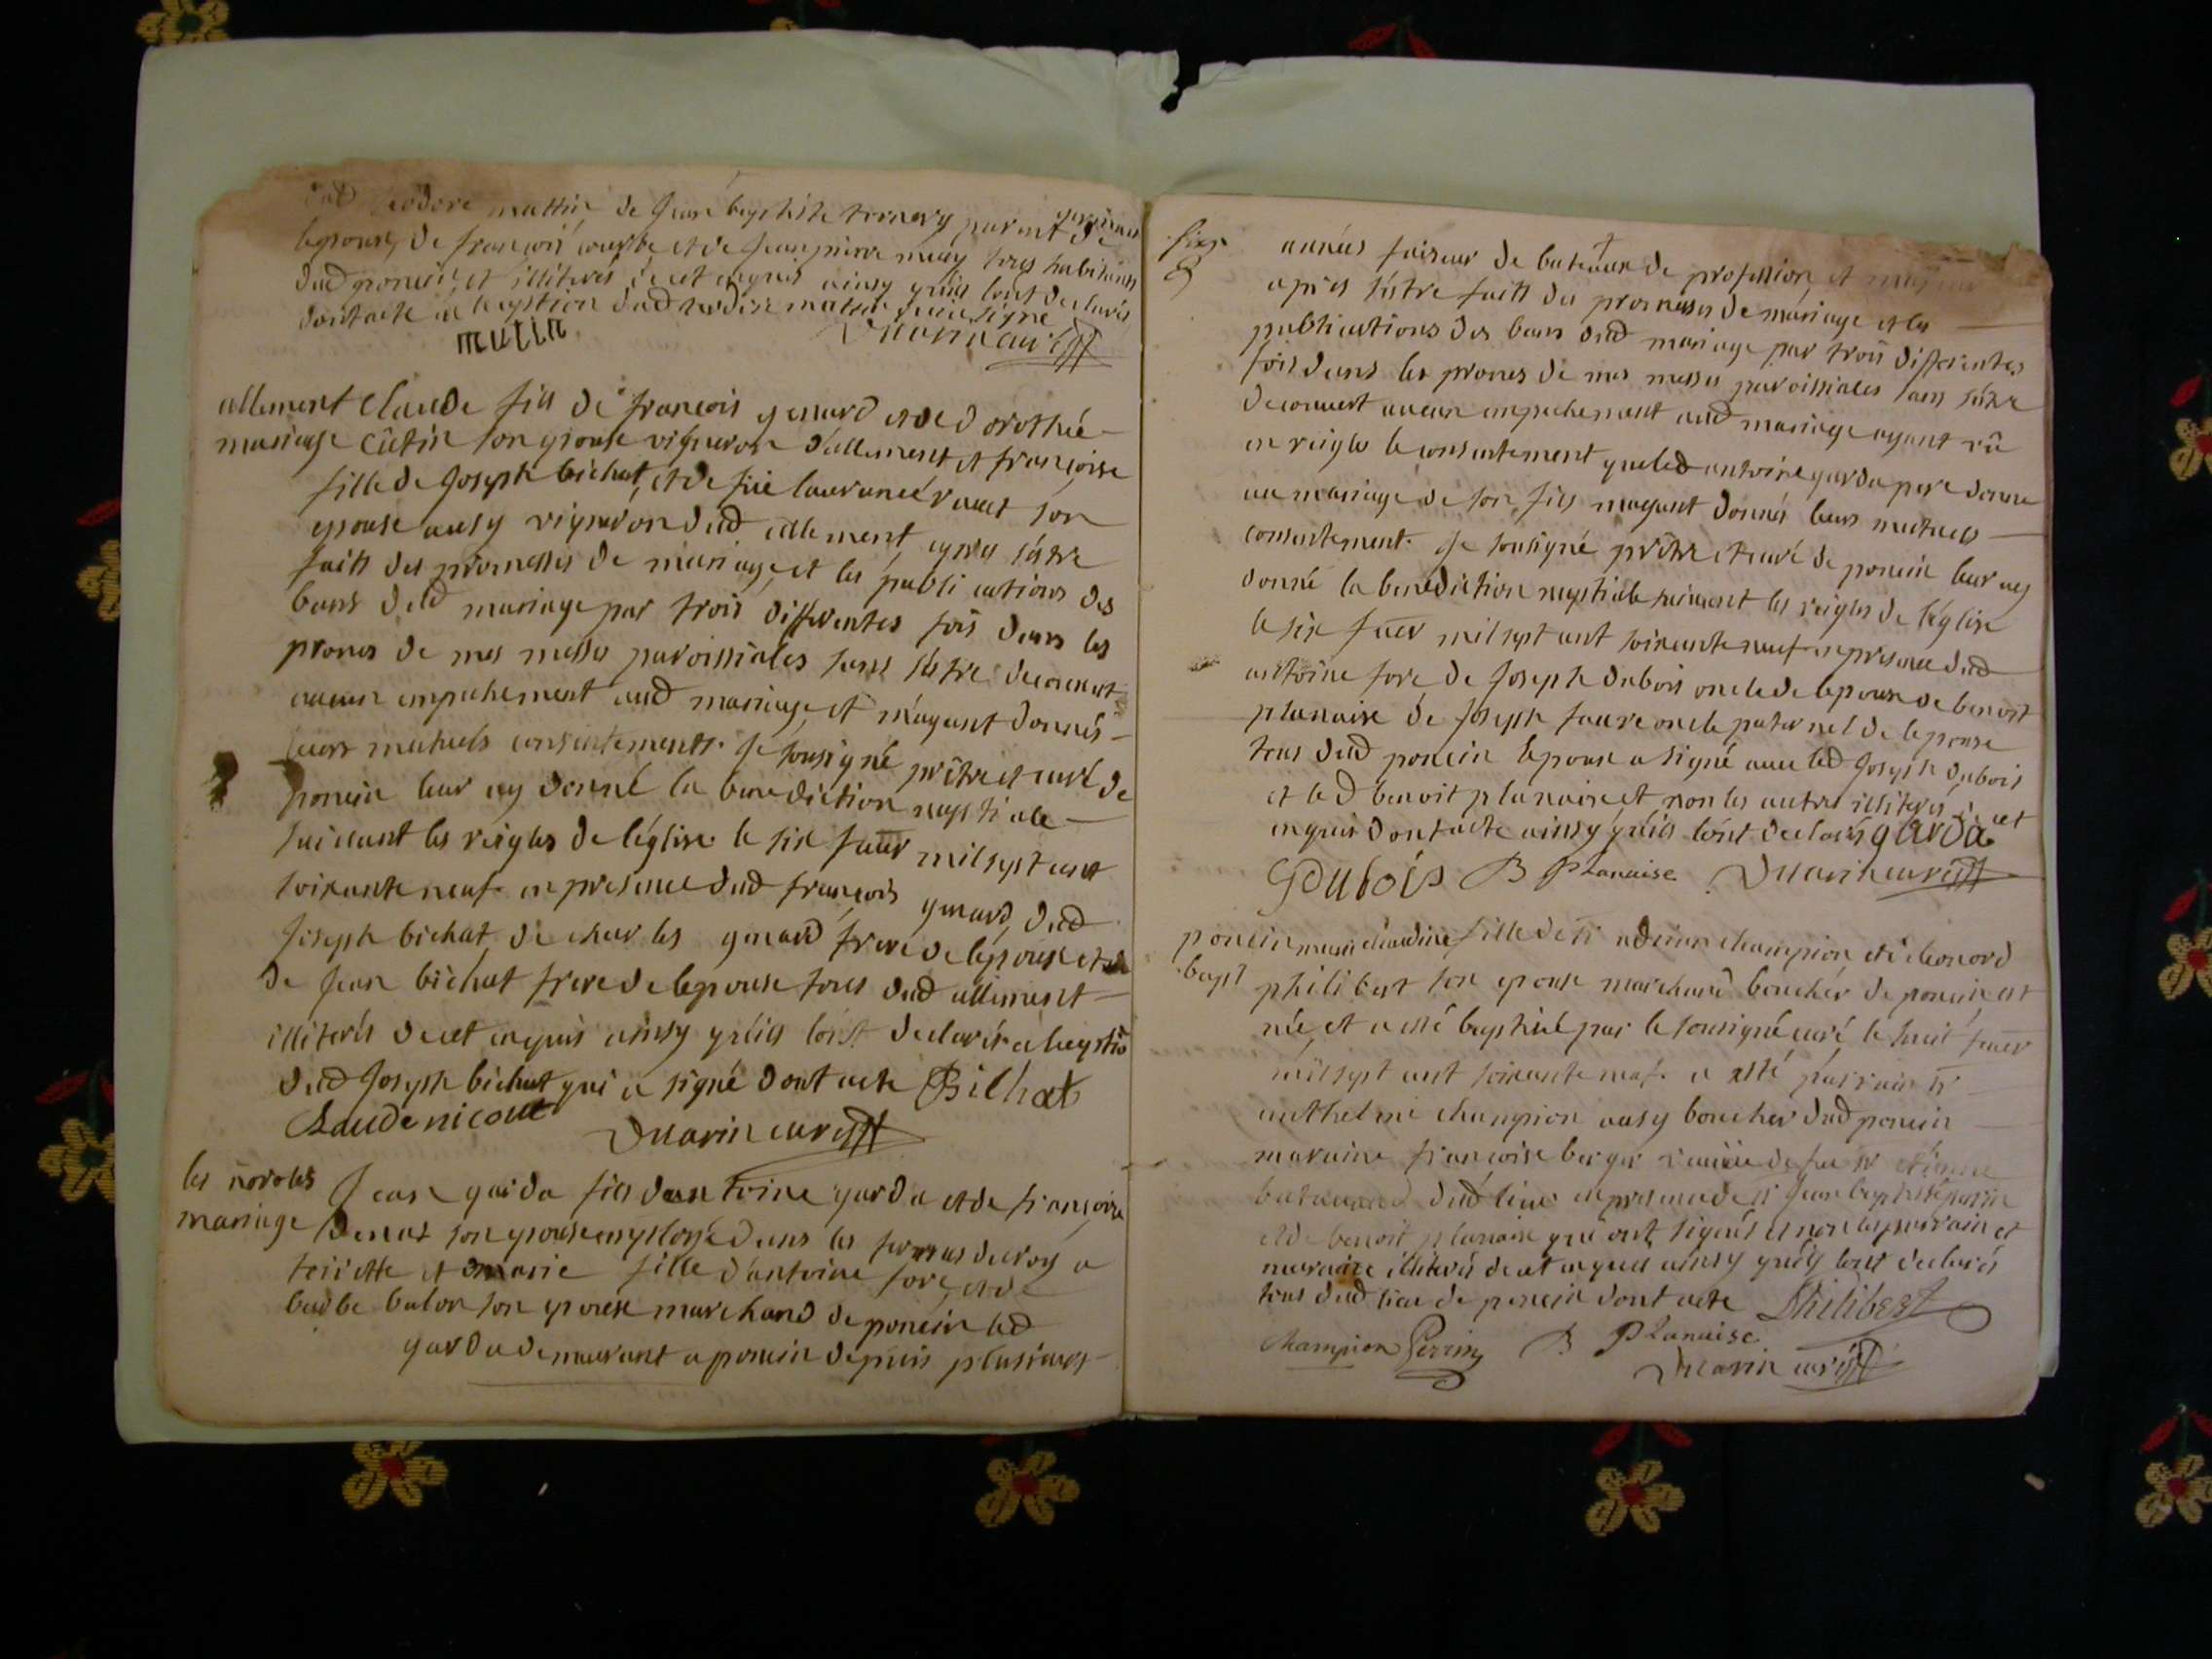 dud de Jean baptiste parent
lepouse, de françois et de Jean pierre tous habitants
dud poncin, et illiterés de cet enquis ainsy quils lont declarés
dont acte a lexeption dud signé
mutin
Dumarin curé
allement Claude fils de françois genard et de dorothée
mariage Cûtin son epouse vigneron dallement et françoise
fille de Joseph bichat, et de feüe son
epouse ausy vigneron dud allement, apres sêstre
faits des promesses de mariage, et les publications des
bans dud mariage par trois differentes fois dans les
prones de mes messes paroissiales sans sêstre decouvert
aucun empechement aud mariage, et m'ayant donnés
leurs mutuels consentements. Je sousigné prêtre et curé de
poncin leur ay donné la benediction nuptiale
suivant les reigles de l'église le six mil sept cent
soixante neuf en presence dud françois genard, dud
Joseph bichat, de charles genard frere de lépoux et
de Jean bichat frere de lepouse tous dud allement
illiterés de cet enquis ainsy quils lont declarés a lexeption
dud Joseph bichat qui a signé dont acte Bilhat
Claude nicout
Dumarin curé
les
mariage Jean garda fils dantoine garda et de françoise
son epouse employé dans les fermes du roy a
et marie fille dantoine fore, et de
barbe balon son epouse marchand de poncin led
garda demeurant a poncin depuis plusieurs
six
années faiseur de bateaux de profession, et
apres sêstre faits des promesses de mariage et les
publications des bans dud mariage par trois differentes
fois dans les prones de mes messes paroissiales sans sêstre
decouvert aucun empechement aud mariage ayant vû
en reigles le consentement que led antoine garda pere donne
au mariage de son fils mayant donnés leurs mutuels
consentement. Je sousigné prêtre et curé de poncin leur ay
donné la benediction nuptiale suivant les reigles de léglise
le six mil sept cent soixante neuf en presence dud
antoine fore, de Joseph dubois oncle de lepoux de benoit
planaise de Joseph oncle paternel de lepouse
tous dud poncin lepoux a signé avec led Joseph dubois
et led benoit planaise et non les autres illiterés de cet
enquis dont acte ainsy quils lont declarés garda
Gdubois B Planaise Dumarin curé
poncin marie claudine fille de sr champion et de leonord
bapt philibert son epouse marchand boucher de poncin est
née, et a esté baptisée par le sousigné curé le huit
mil sept cent soixante neuf. a esté parrain sr
anthelme champion ausy boucher dud poncin
maraine françoise berger veuve de feu sr
dud lieu en presence de sr Jean baptiste
et de benoit planaise qui ont signés et non les parrain et
maraine illiterés de cet enquis ainsy quils lont declarés
tous dud lieu de poncin dont acte Philibert
Champion Perrin B Planaise
Dumarin curé